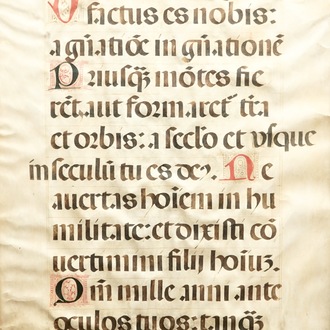 O
factus es nobis:
a gn̄atiōe in gn̄ationē
Priusq̄ȝ mōtes fie
rēt, aut formaret̄ t̄ra
et orbis: a sec̄lo et vsque
in secul̄u tu es deꝰ. Ne
auertas hoīem in hu
militate: et dixisti cō
uertimini filij hoīuȝ.
Qm̄ mille anni ante
oculos tuos: tanq̄ȝ